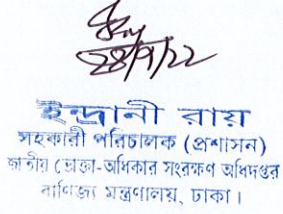 28/9/22
ইন্দ্রানী রায়
সহকারী পরিচালক (প্রশাসন)
জাতীয় ভোক্তা-অধিকার সংরক্ষণ অধিদপ্তর
বাণিজ্য মন্ত্রণালয়, ঢাকা।